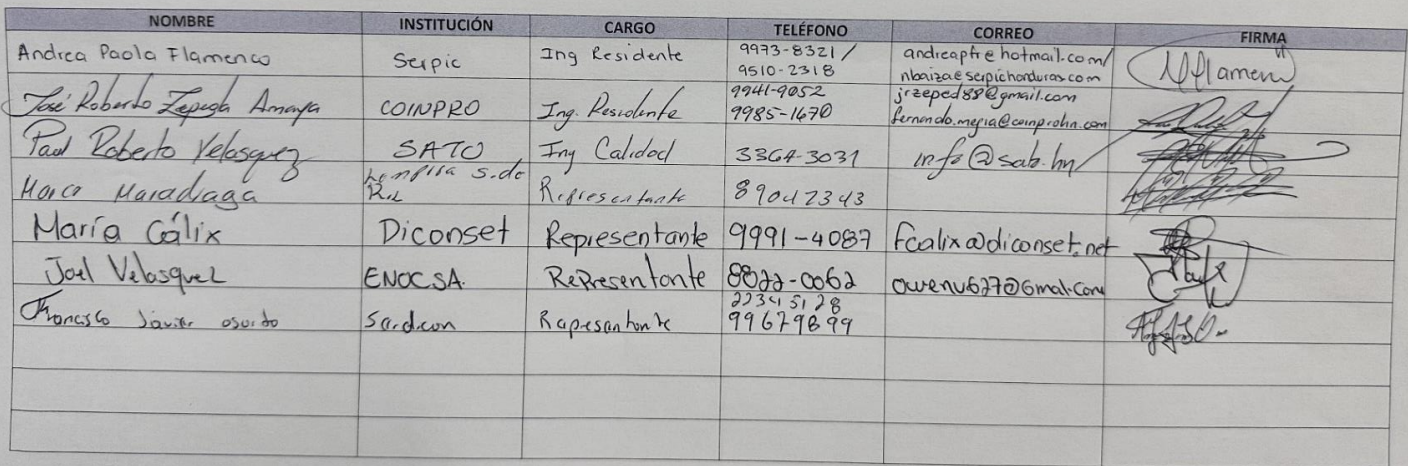 NOMBRE INSTITUCIÓN CARGO TELÉFONO CORREO FIRMA
Andrea Paola Flamenco Serpic Ing Residente 9973-8321 / 9510-2318 andreapfr@hotmail.com/ nbaiza@serpichonduras.com
José Roberto Zepeda Amaya COINPRO Ing. Residente 9941-9052 9985-1670 jrzeped88@gmail.com fernando.mejia@coinprohn.com
Paul Roberto Velasquez SATO Ing Calidad 3364-3031 info@sato.hn
Marco Maradiaga Lempira s.de R.L Representante 89042343
María Cálix Diconset Representante 9991-4087 fcalix@diconset.net
Joel Velasquez ENOCSA. Representante 8822-0062 owenv627@Gmail.com
Francisco Javier Sardcon Representante 22345128 99679899